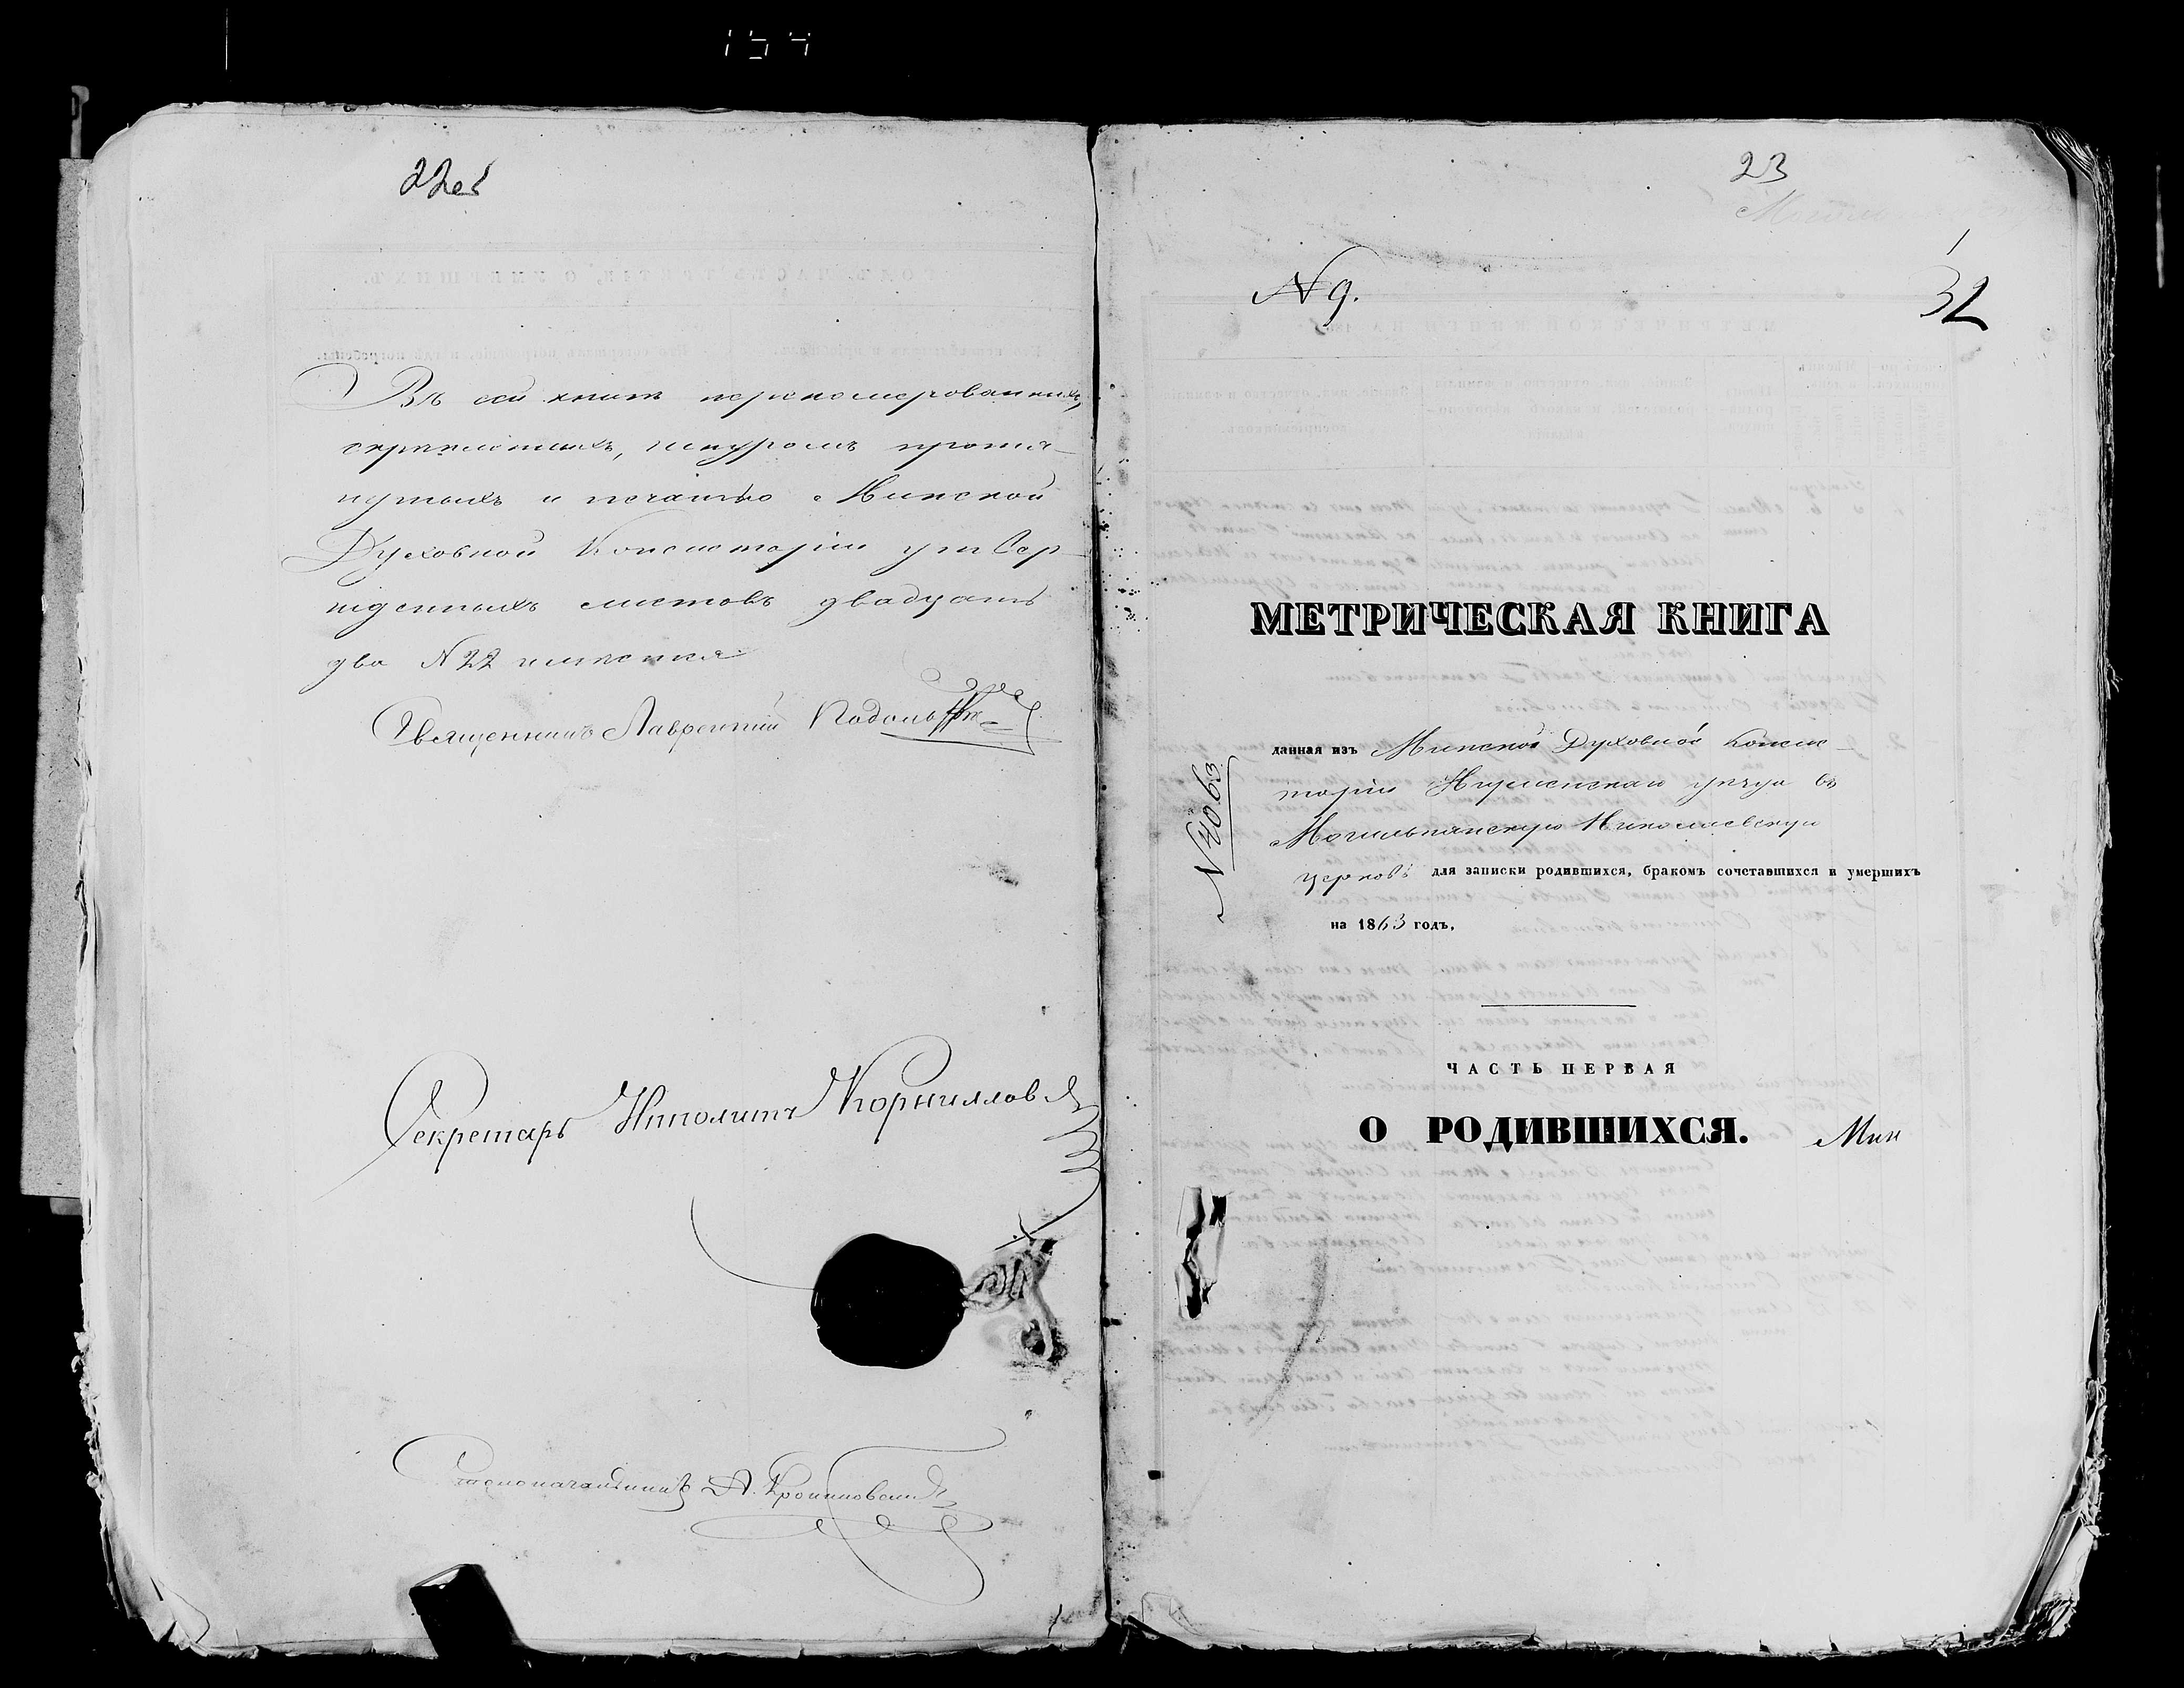 154
22об
Въ сей книгѣ перенумерованныхъ,
скрѣпленныхъ, шнуромъ протя-
нутыхъ и печатью Минской
Духовной Консисторіи утвер-
жденныхъ листовъ двадцать
два N 22
Священникъ Лаврентій
Секретарь Иполитъ Корниллов
Столоначальникъ А.
23
N 9.
1
32
МЕТРИЧЕСКАЯ КНИГА
данная изъ Минской Духовной Консис-
торіи Игуменскаго уѣзда въ
Могильнянскую Николаевскую
церковь для записки родившихся, бракомъ сочетавшихся и умершихъ
на 1863 годъ.
N 4063
ЧАСТЬ ПЕРВАЯ
О РОДИВШИХСЯ.
Мин